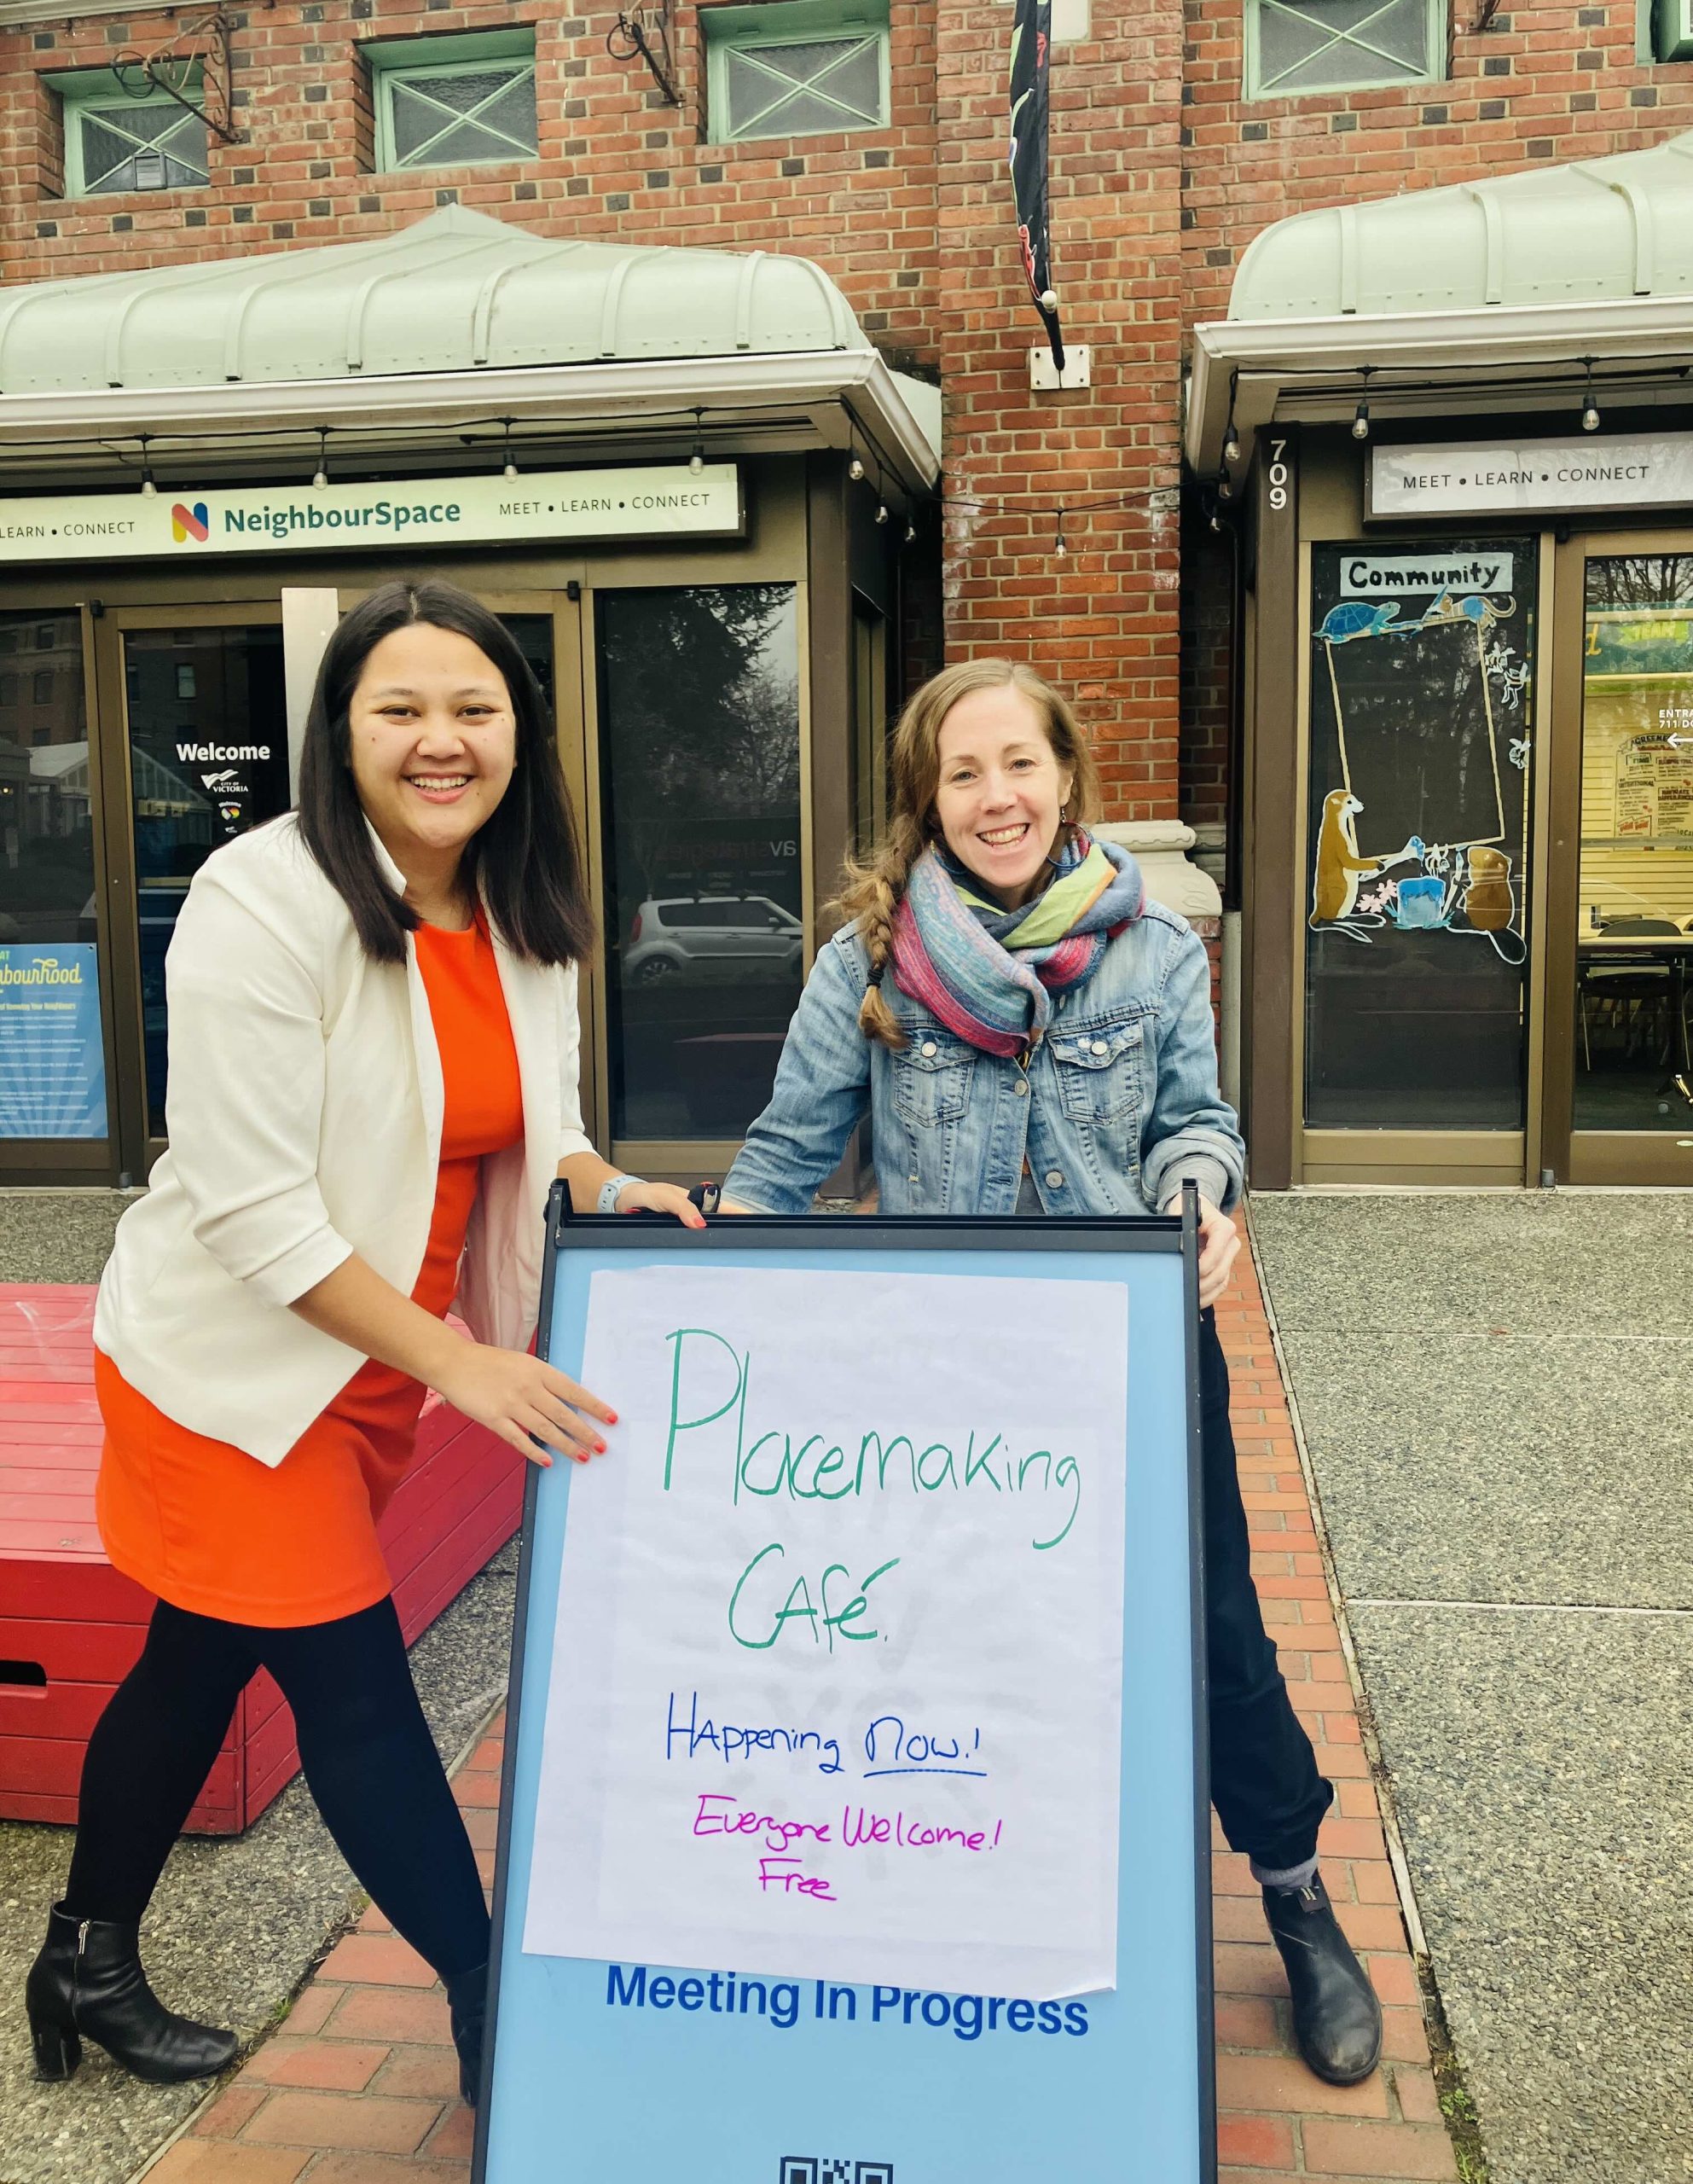 LEARN • CONNECT
NeighbourSpace
MEET • LEARN • CONNECT
709
MEET • LEARN • CONNECT
Community
Welcome
CITY OF
VICTORIA
Welcome
ENTRA
711 DO
bourhood
Placemaking
CAfé.
HAppening Now!
Everyone Welcome!
Free
Meeting In Progress